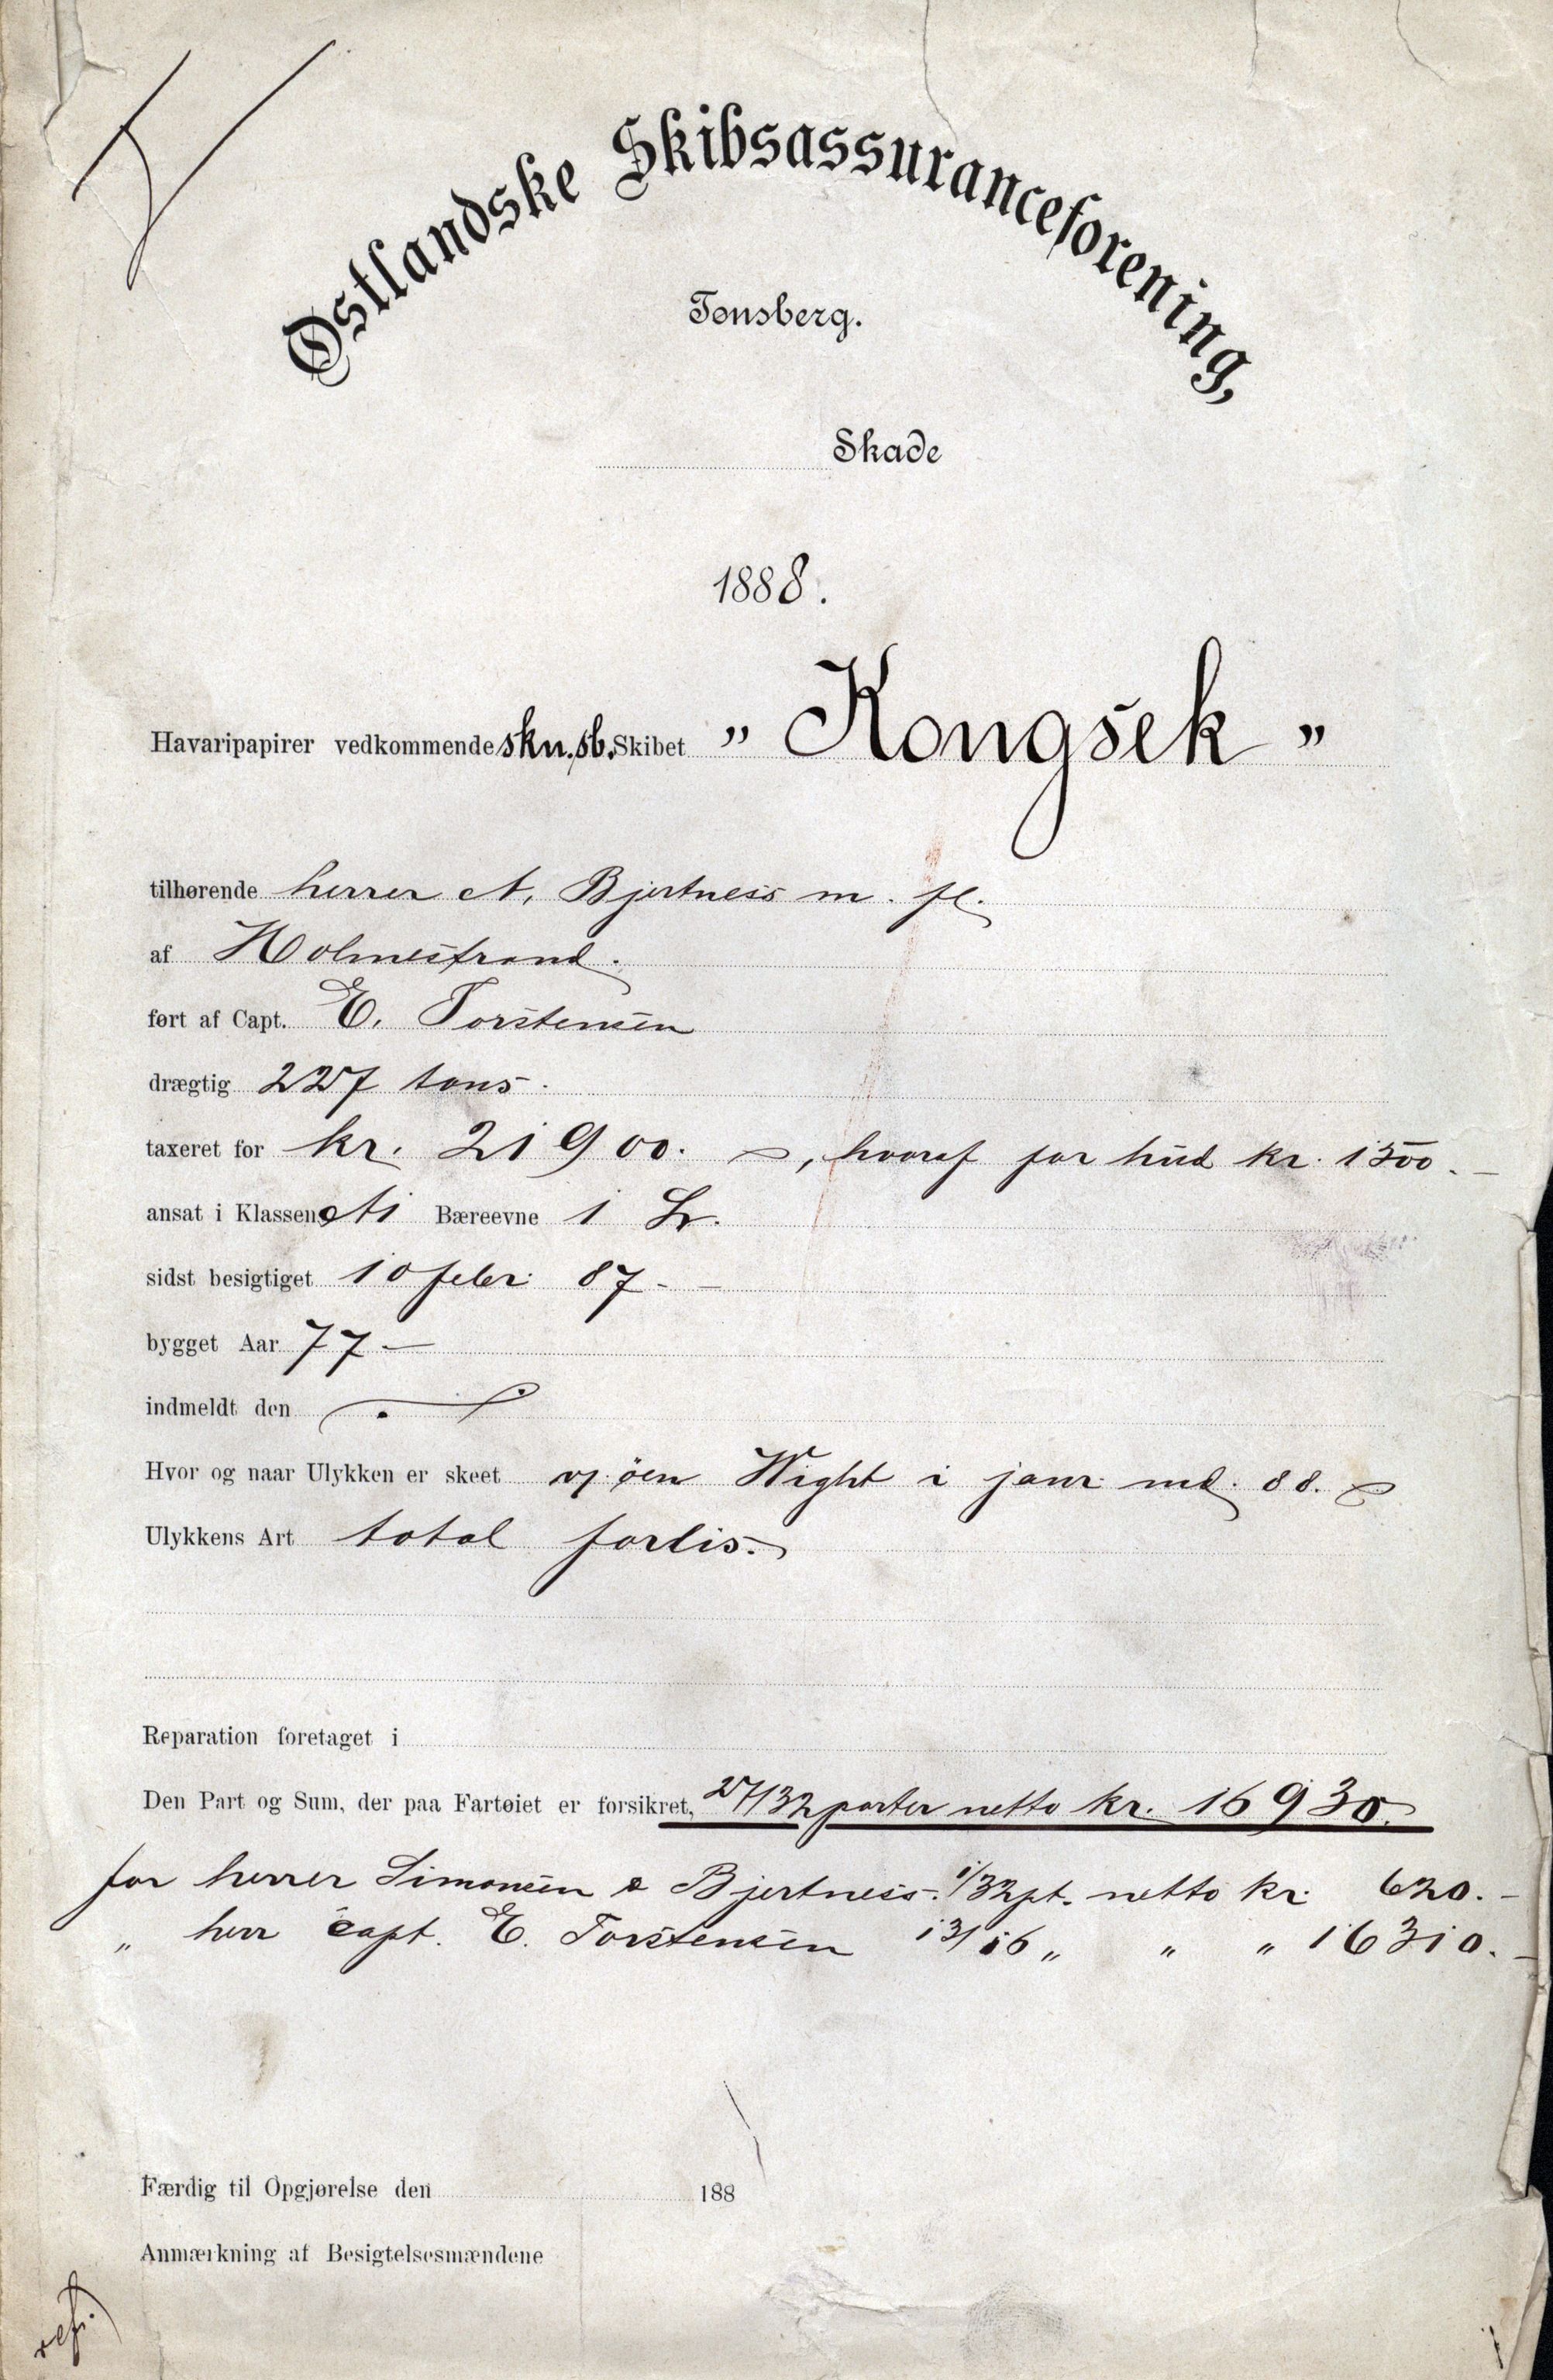 Østlandske Skibsassuranceforening,
Tønsberg.
Skade
1888.
Havaripapirer vedkommende skn.sb. Skibet " Kongsek "
tilhørende herrer A. Bjertness m. fl.
af Holmestrand.
ført af Capt. E. Torstensen
drægtig 227 tons.
taxeret for kr. 21900. , hvoraf for hud kr. 1500.-
ansat i Klassen A1 Bæreevne 1 Lr.
sidst besigtiget 10 febr: 87 - -
bygget Aar 77 -
indmeldt den
Hvor og naar Ulykken er skeet v/ øen Wight i janr. md. 88.
Ulykkens Art total forlis.
Reparation foretaget i
Den Part og Sum, der paa Fartøiet er forsikret, 27/32 parter netto kr. 16930.
for herrer Simonsen & Bjertness. 1/32 pt. netto kr. 620.-
" herr capt. E. Torstensen 13/16 " " " 16310.-
Færdig til Opgjørelse den 188
Anmærkning af Besigtelsesmændene